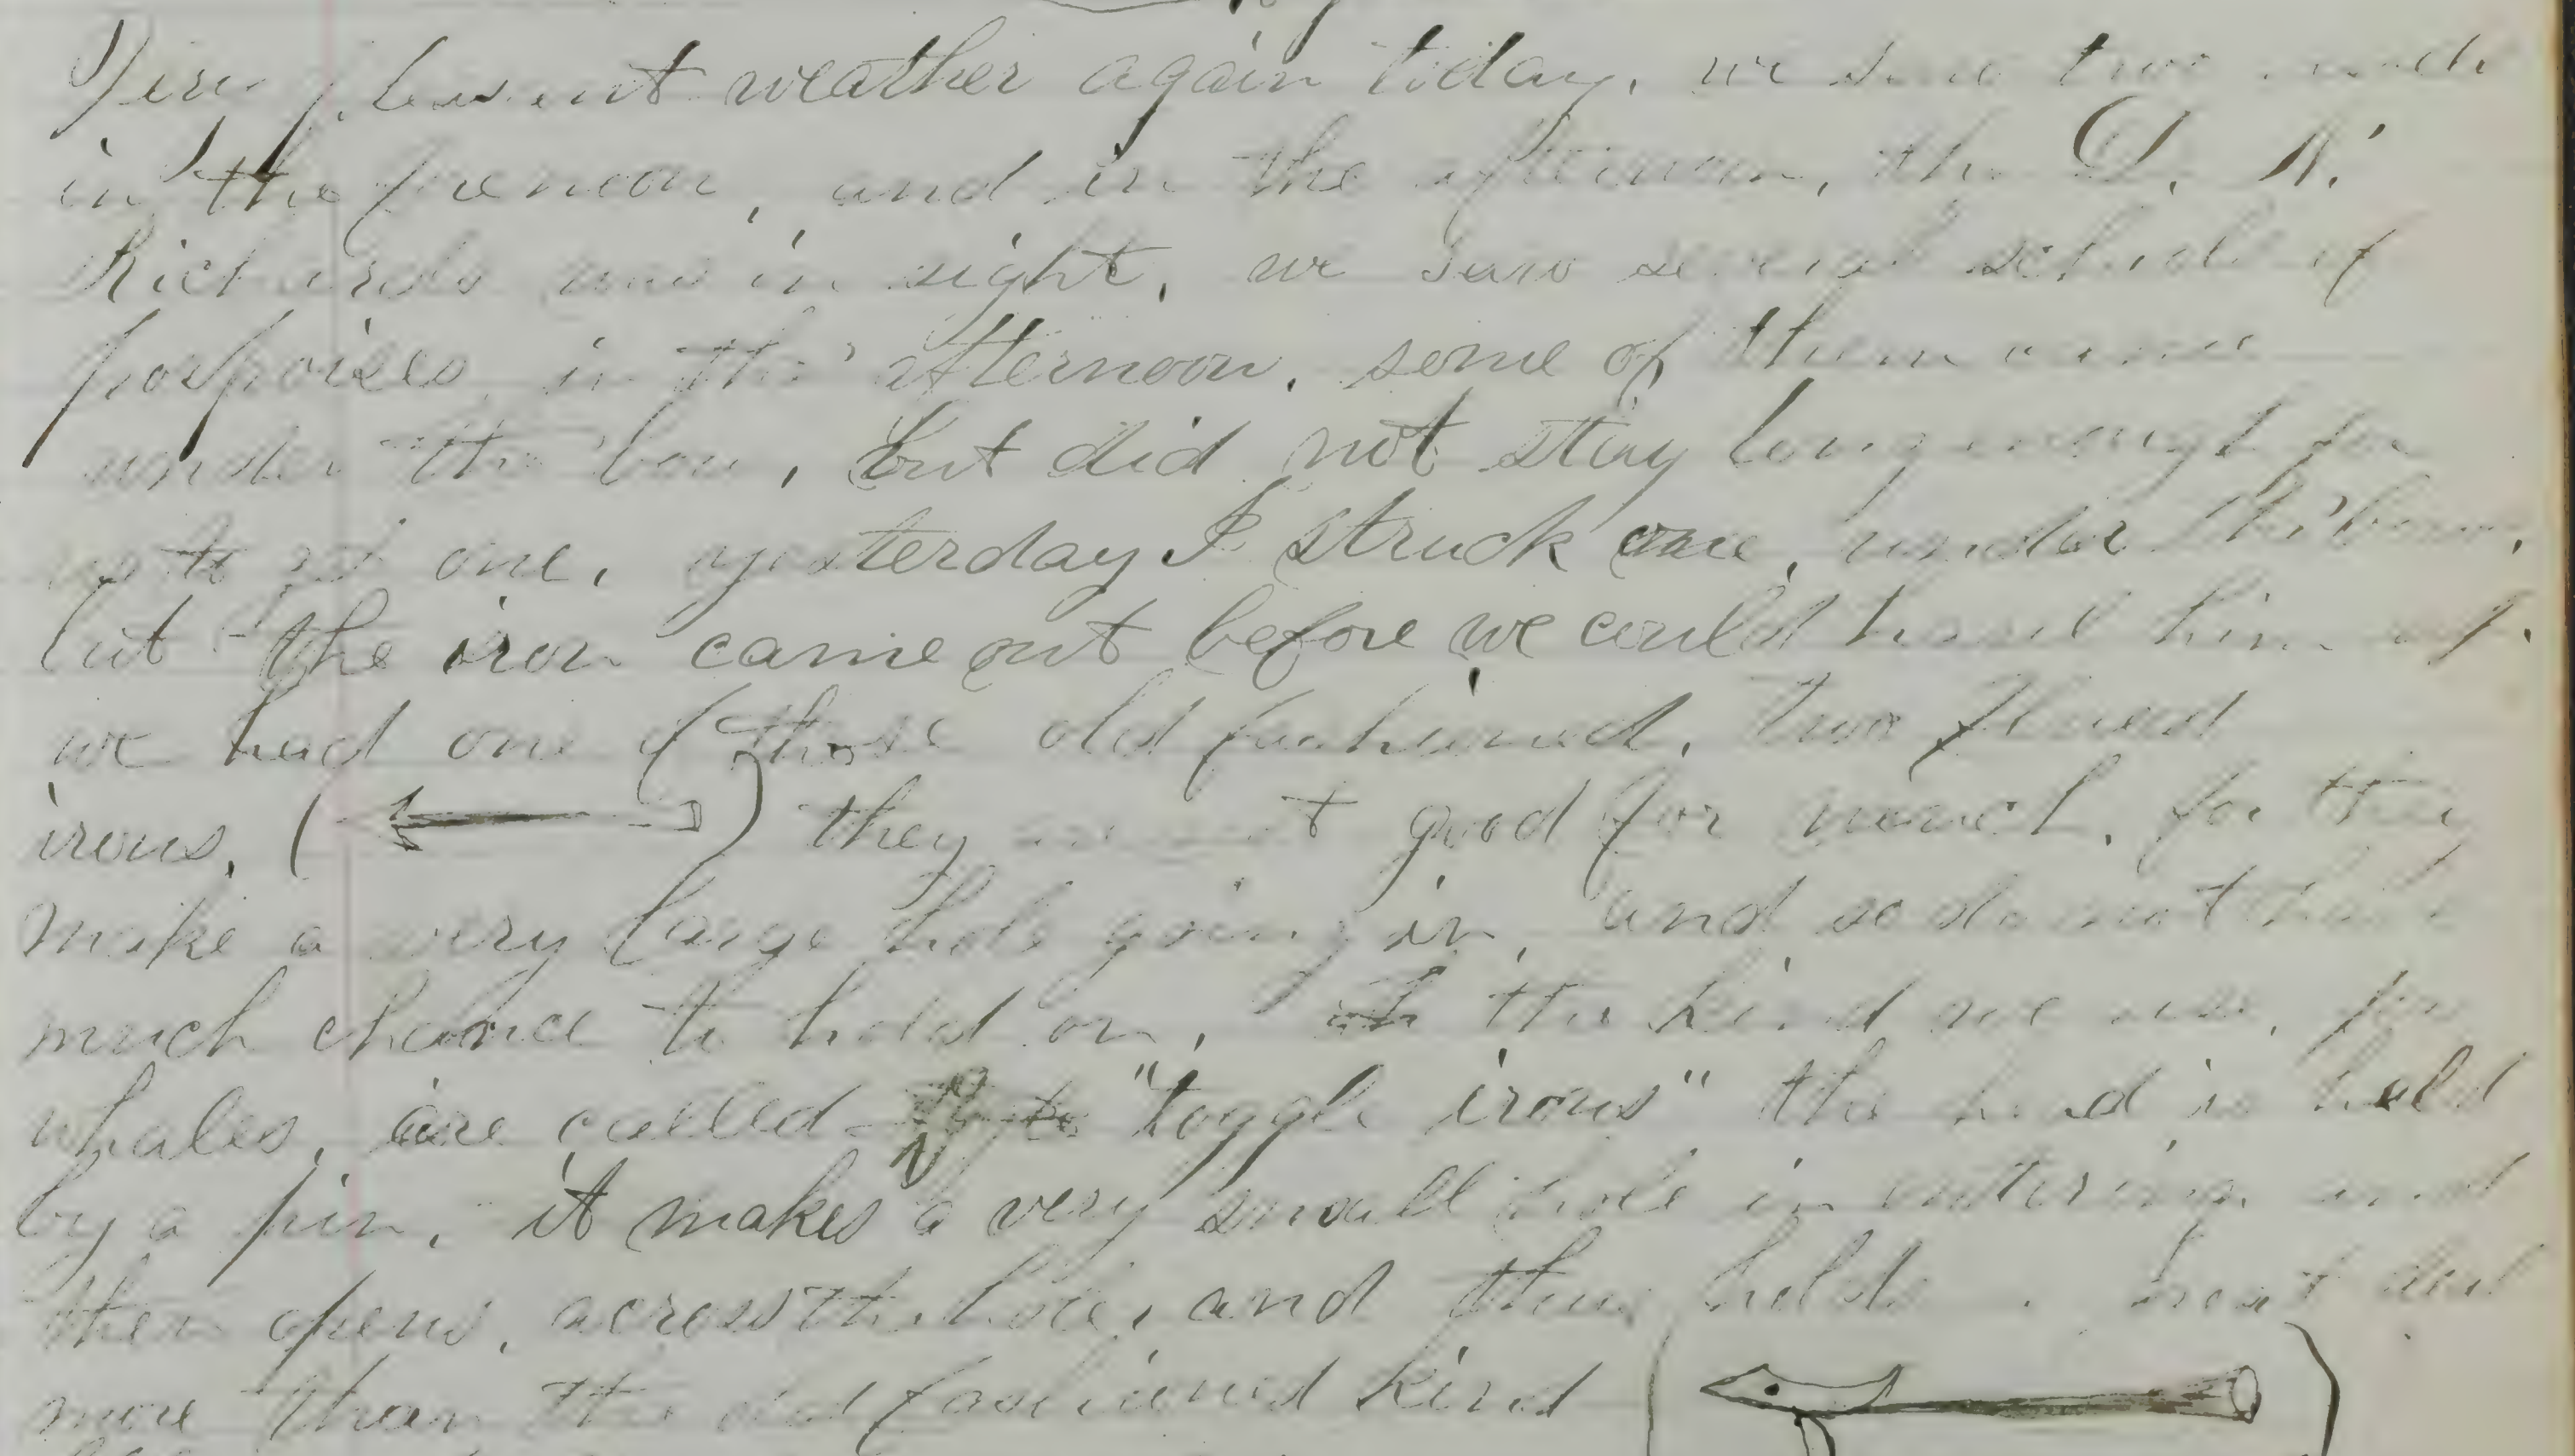 Very pleasant weather again today, we saw two
in the forenoon, and in the afternoon, the D. N.
Richards was in sight, we saw several schools of
porpoises in the afternoon. some of them came
under the bow, but did not stay long enough for
us to get one, yesterday I struck one, under the bow,
but the iron came out before we could haul him up.
we had one of those old fashioned, two flued
irons, ( ) they are not good for much, for they
make a very large hole going in, and so do not have
much chance to hold on, the kind we use, for
whales, are called "toggle irons" the head is held
by a pin, it makes a very small hole in entering and
then opens, across the hole, and then holds a great deal
more than the old fashioned kind